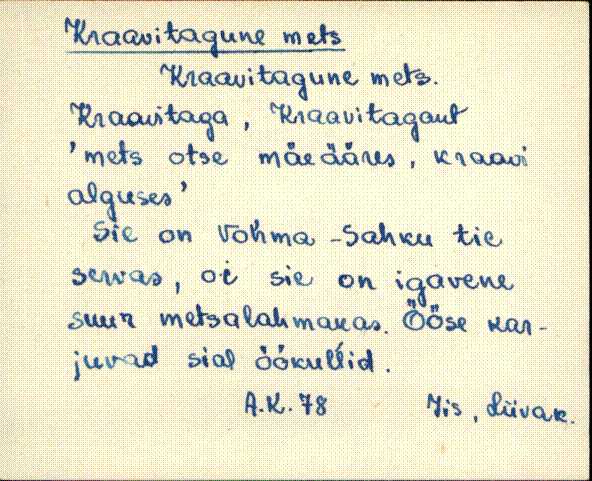 Kraavitagune mets
Kraavitagune mets.
Kraavitaga, Kraavitagant
'mets otse mäeääres, kraavi
alguses'
Sie on Vohma - Sahku tie
servas, oi sie on igavene
suur metsalahmakas. Ööse kar-
juvad sial öökullid.
A.K. 78 Jis, Liivak.